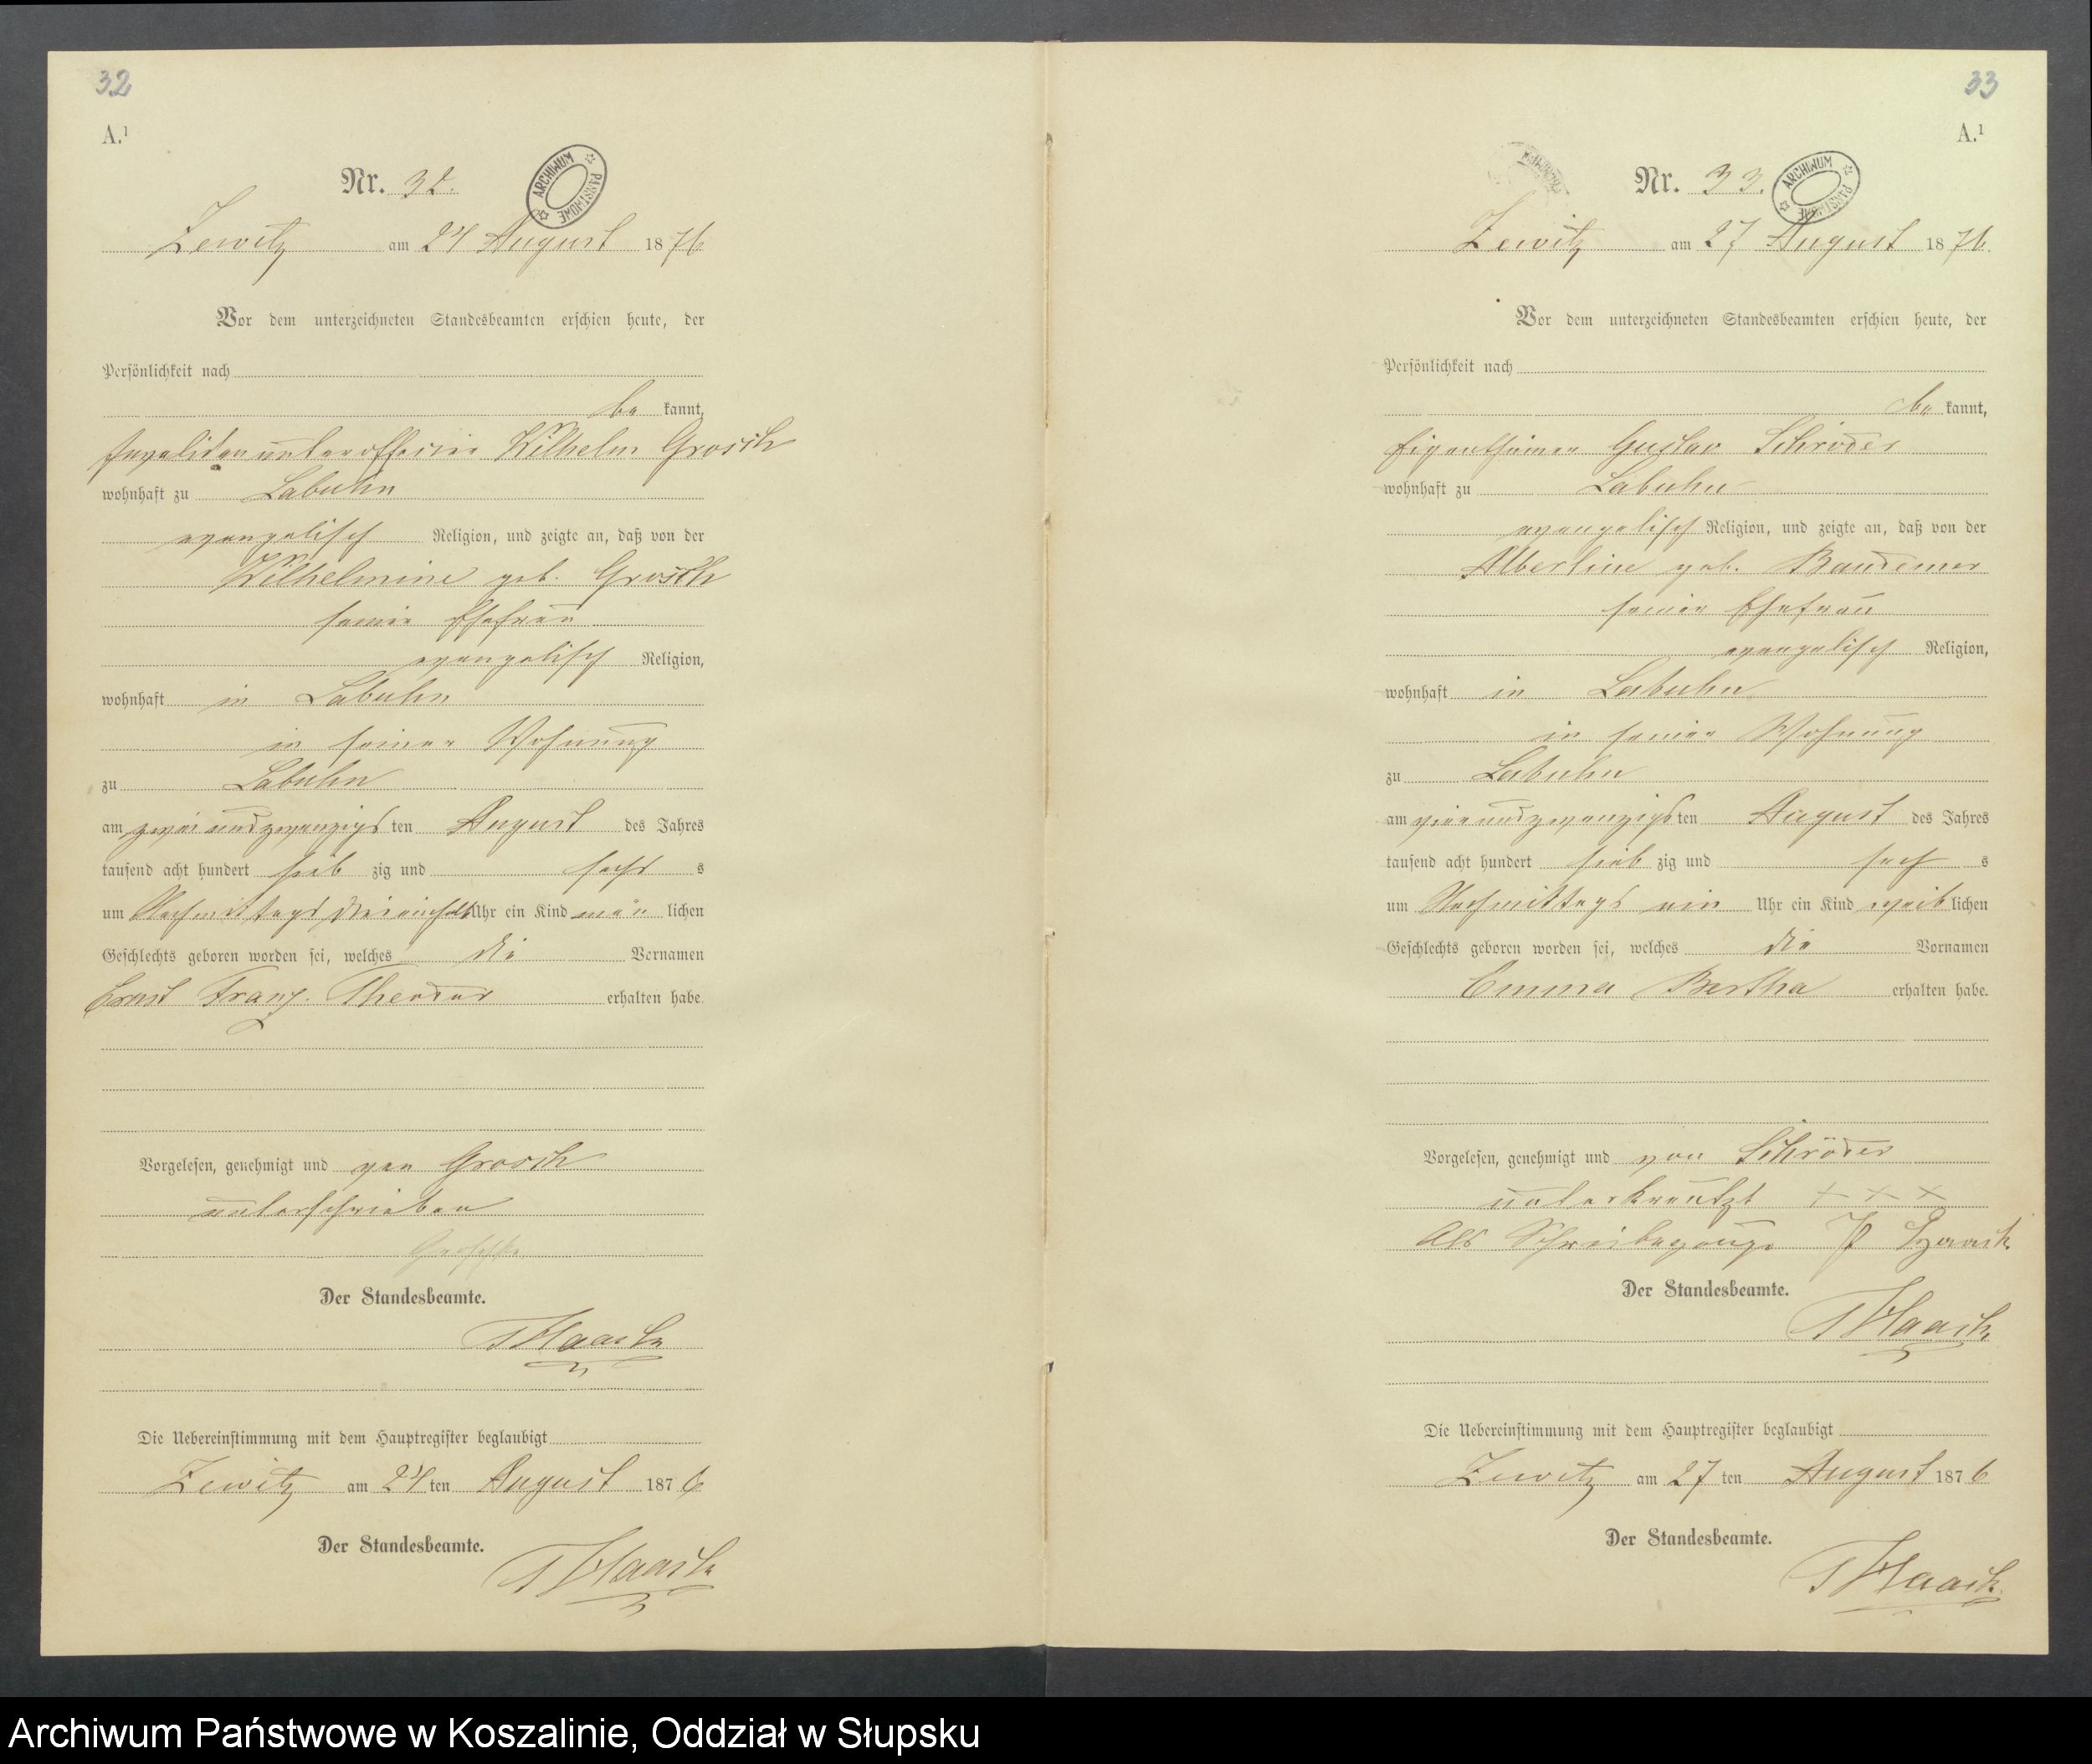 32
A.¹
Nr. 32.
ARCHIWUM PAŃSTWOWE
Zewitz am 24 August 1876
Vor dem unterzeichneten Standesbeamten erschien heute, der
Persönlichkeit nach
be kannt,
Invalidenunterofficier Wilhelm Grosch
wohnhaft zu Labuhn
evangelisch Religion, und zeigte an, daß von der
Wilhelmine geb. Grosch
seiner Ehefrau
evangelisch Religion,
wohnhaft in Labuhn
in seiner Wohnung
zu Labuhn
am zwei und zwanzigsten August des Jahres
tausend acht hundert sieb zig und sechs
um Nachmittags Uhr ein Kind män lichen
Geschlechts geboren worden sei, welches die Vornamen
Ernst Franz Theodor erhalten habe.
Vorgelesen, genehmigt und von Grosch
unterschrieben
Der Standesbeamte.
Haack
Die Uebereinstimmung mit dem Hauptregister beglaubigt
Zewitz am 24 ten August 1876
Der Standesbeamte.
Haack
33
A.¹
Nr. 33.
ARCHIWUM PAŃSTWOWE
Zewitz am 27 August 1876.
Vor dem unterzeichneten Standesbeamten erschien heute, der
Persönlichkeit nach
be kannt,
Eigenthümer Gustav Schröder
wohnhaft zu Labuhn
evangelisch Religion, und zeigte an, daß von der
Albertine geb. Bandemer
seiner Ehefrau
evangelisch Religion,
wohnhaft in Labuhn
in seiner Wohnung
zu Labuhn
am vier und zwanzigsten August des Jahres
tausend acht hundert sieb zig und sech s
um Nachmittags ein Uhr ein Kind weib lichen
Geschlechts geboren worden sei, welches die Vornamen
Emma Bertha erhalten habe.
Vorgelesen, genehmigt und von Schröder
unterkreutzt + + +
Als Schreibezeuge
Der Standesbeamte.
Haack
Die Uebereinstimmung mit dem Hauptregister beglaubigt
Zewitz am 27 ten August 1876
Der Standesbeamte.
Haack
Archiwum Państwowe w Koszalinie, Oddział w Słupsku